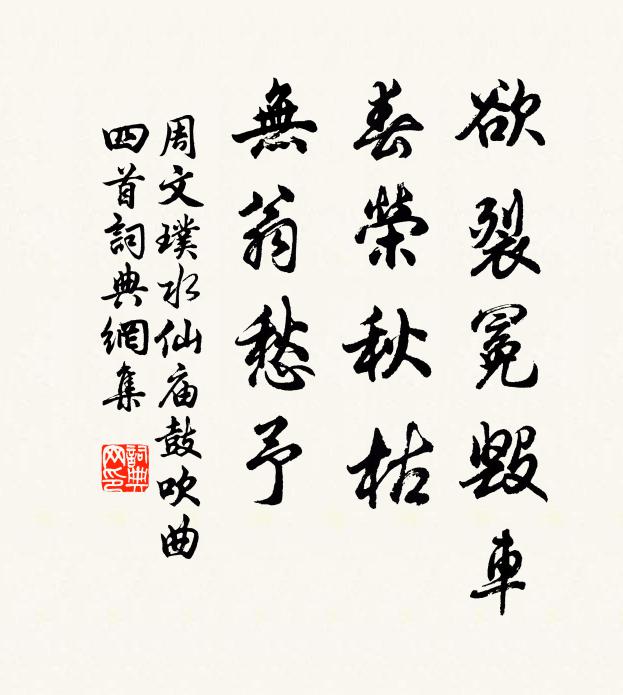 欲裂冕毀車
春榮秋枯
無翁愁予
周文璞水仙庙鼓吹曲
四首詞典網集
詞典网印